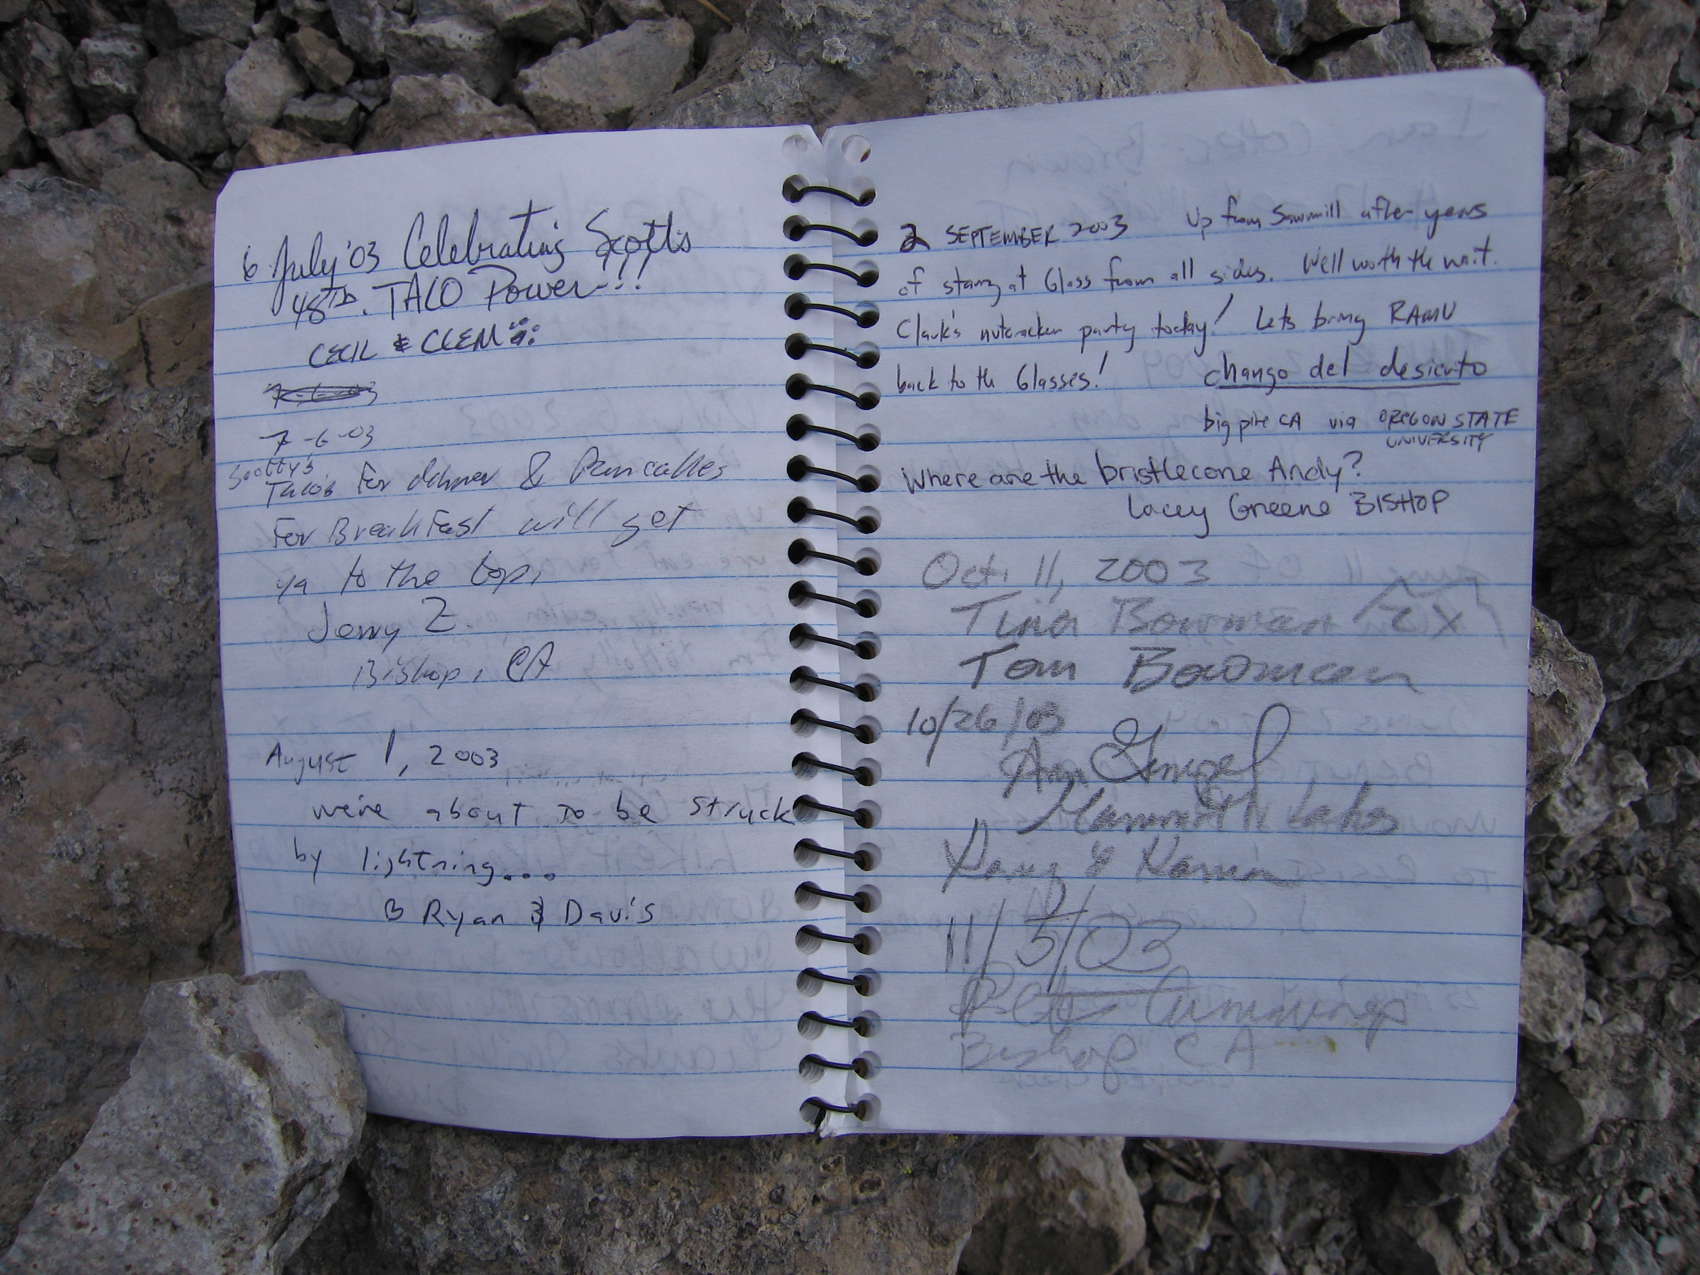 6 July '03 Celebrating Scott's
48th. TACO Power!!!
CECIL & CLEM
7-6-03
Scotty's
Taco's For dinner & Pancakes
For BreakFast will get
ya to the top,
Jerry Z.
Bishop, CA
August 1, 2003
we're about to be struck
by lightning...
Ryan & Davis
2 SEPTEMBER 2003 Up from Sawmill after years
of staring at Glass from all sides. Well worth the wait.
Clark's nutcracker party today! Lets bring RAMU
back to th Glasses! chango del desierto
big pine CA via OREGON STATE
UNIVERSITY
Where are the bristlecone Andy?
Lacey Greene BISHOP
Oct. 11, 2003
Tina Bowman 2x
Tom Bowman
10/26/03
Ann
Mammoth Lakes
& Karen
11/5/03
Cummings
Bishop CA